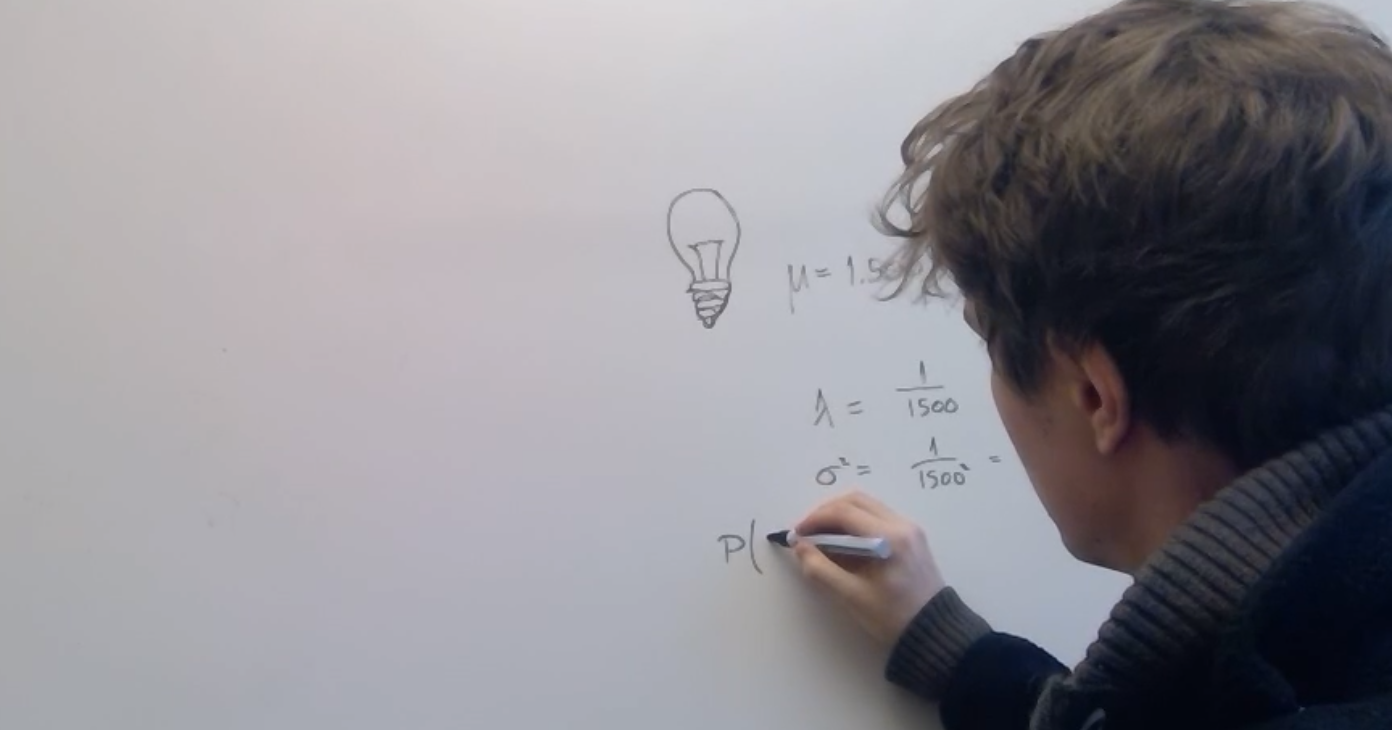 μ = 1.50
λ = 1/1500
σ² = 1/1500² =
P(